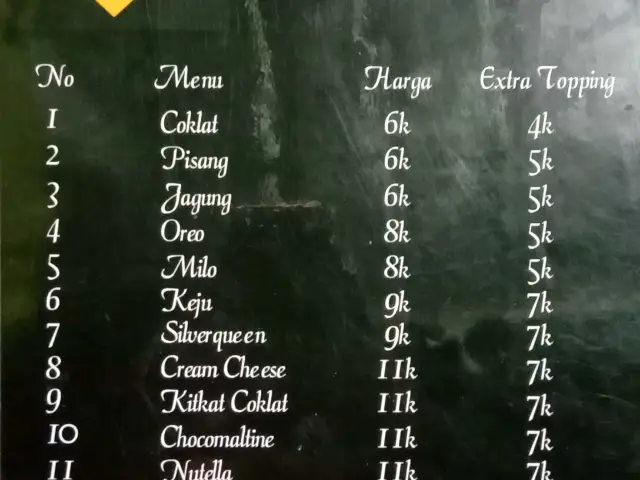 No Menu Harga Extra Topping
1 Coklat 6k 4k
2 Pisang 6k 5k
3 Jagung 6k 5k
4 Oreo 8k 5k
5 Milo 8k 5k
6 Keju 9k 7k
7 Silverqueen 9k 7k
8 Cream Cheese 11k 7k
9 Kitkat Coklat 11k 7k
10 Chocomaltine 11k 7k
11 Nutella 11k 7k